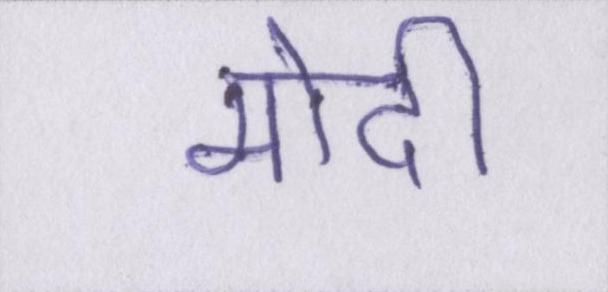 मोदी